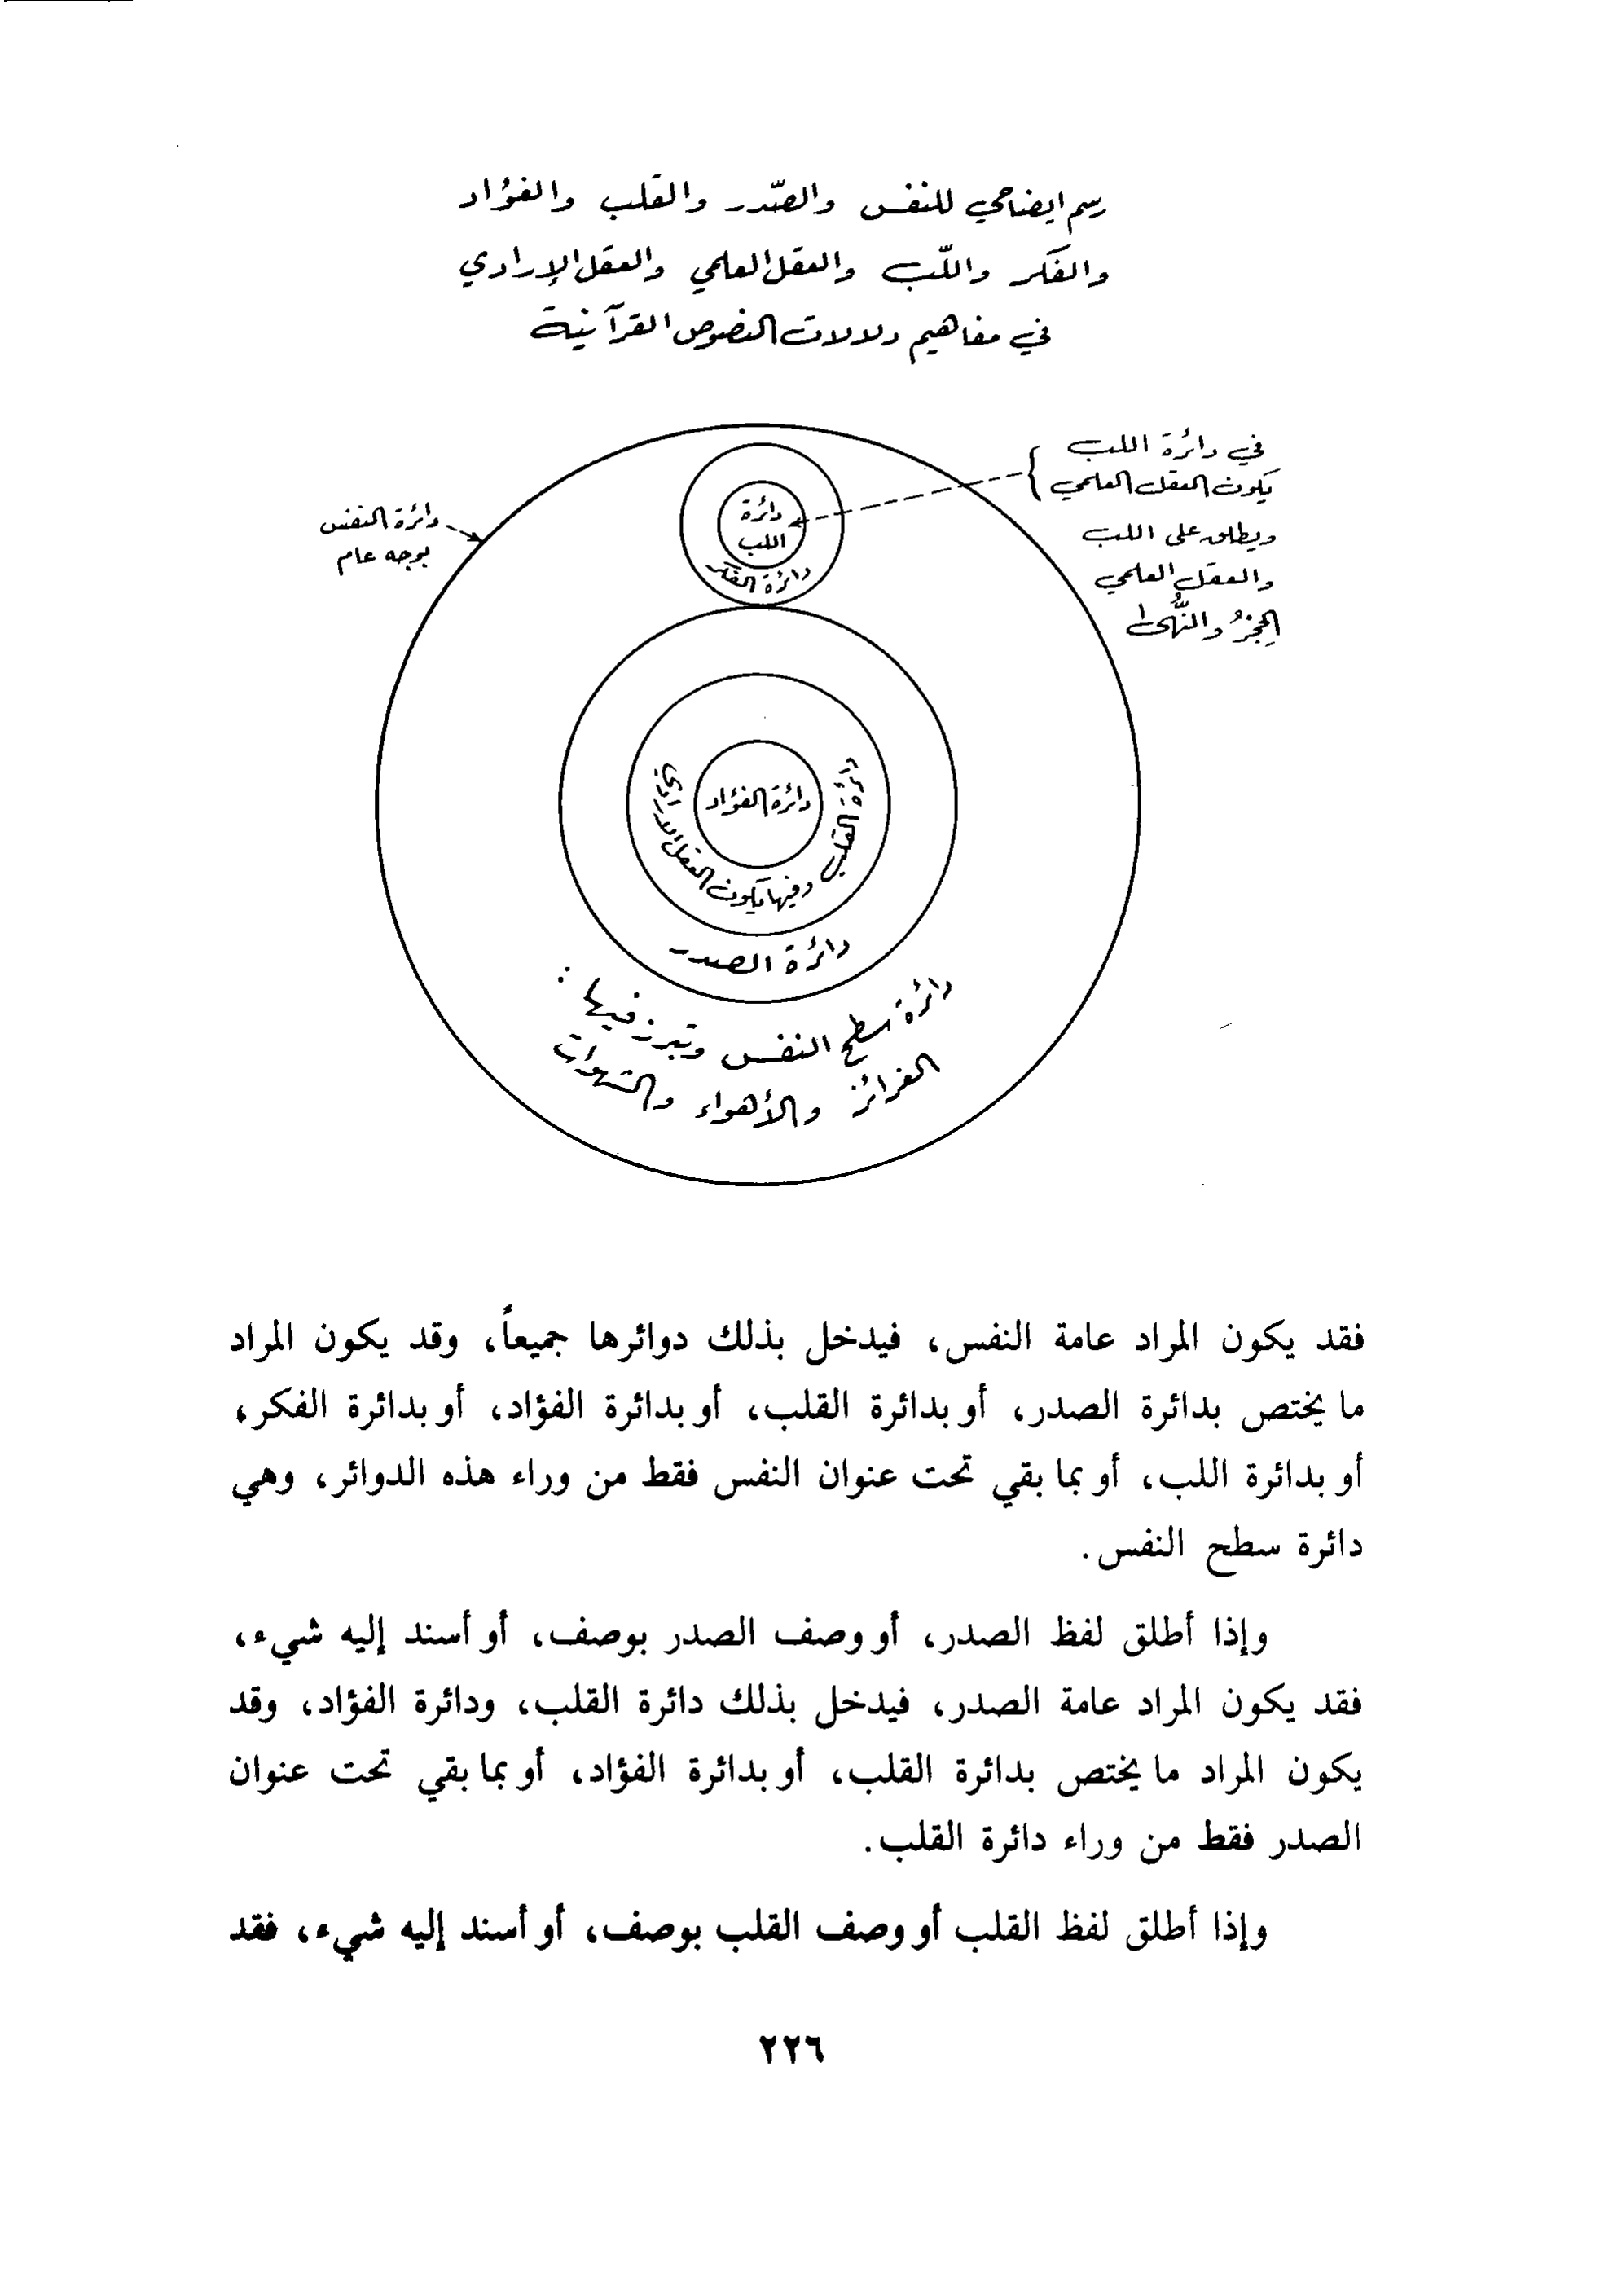 رسم ايضاحي للنفس والصّدر والقلب والفؤاد
والفكر واللّب والعقل العلمي والعقل الإرادي
في مفاهيم دلالات النصوص القرآنية
في دائرة اللب
يكون العقل العلمي
ويطلق على اللب
والعقل العلمي
الحِجْرُ والنُّهىٰ
دائرة النفس
بوجه عام
دائرة
اللب
دائرة الفكر
دائرة الفؤاد
دائرة القلب وفيها يكون العقل الارادي
دائرة الصدر
دائرة سطح النفس وتبرز فيها :
الغرائز والأهواء والشهوات
فقد يكون المراد عامة النفس، فيدخل بذلك دوائرها جميعاً، وقد يكون المراد
ما يختص بدائرة الصدر، أو بدائرة القلب، أو بدائرة الفؤاد، أو بدائرة الفكر،
أو بدائرة اللب، أو بما بقي تحت عنوان النفس فقط من وراء هذه الدوائر، وهي
دائرة سطح النفس.
وإذا أطلق لفظ الصدر، أو وصف الصدر بوصف، أو أسند إليه شيء،
فقد يكون المراد عامة الصدر، فيدخل بذلك دائرة القلب، ودائرة الفؤاد، وقد
يكون المراد ما يختص بدائرة القلب، أو بدائرة الفؤاد، أو بما بقي تحت عنوان
الصدر فقط من وراء دائرة القلب.
وإذا أطلق لفظ القلب أو وصف القلب بوصف، أو أسند إليه شيء، فقد
٢٢٦